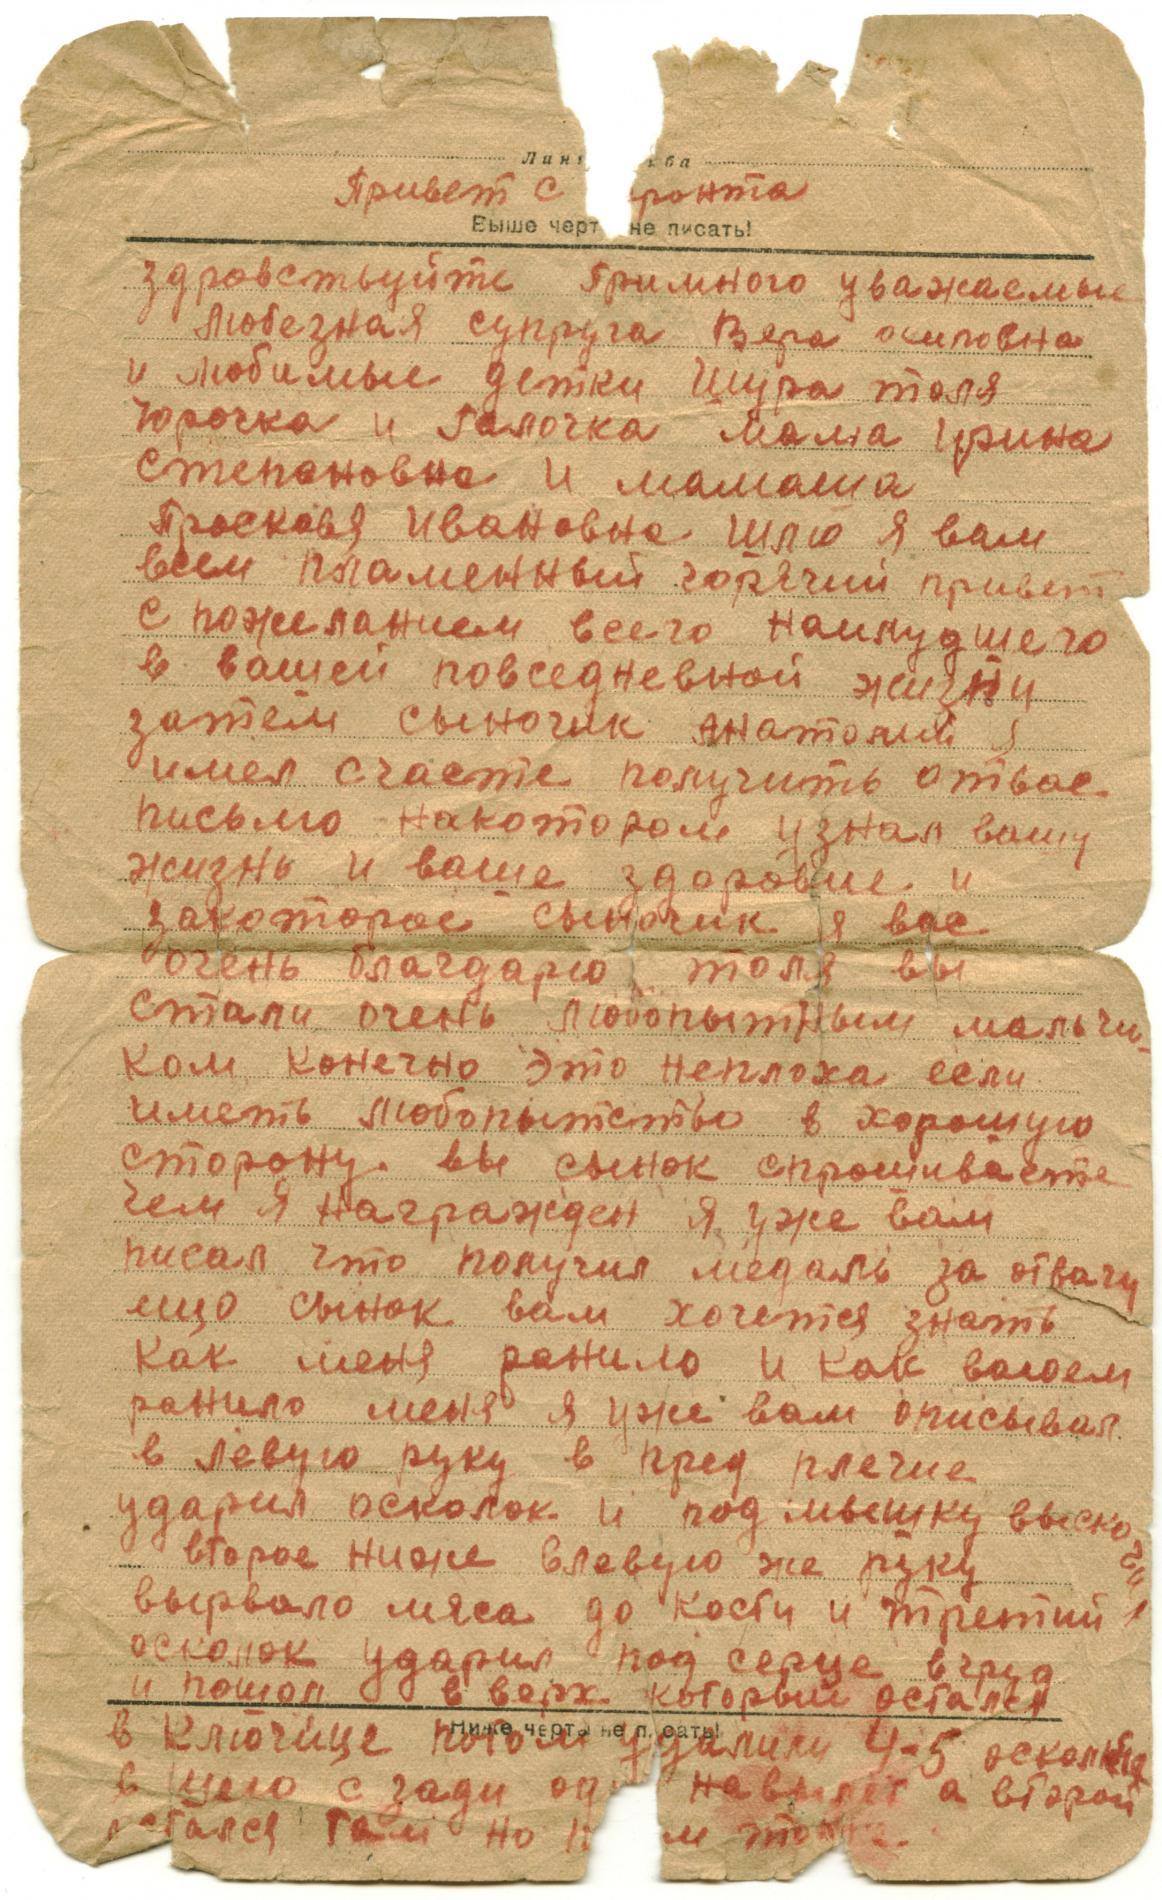 Привет с фронта
Выше черт не писать!
здровствуйте Примного уважаемые
Любезная супруга Вера осиповна
и любимые детки Шура толя
Юрочка и Галочка мама Ирина
Степановна и мамаша
Просковя Ивановна шлю я вам
всем пламенный горячий привет
с пожеланием всего наилудшего
в вашей повседневной жизни
затем сыночик Анатолий я
имел счасте получить отвас
письмо накотором узнал вашу
жизнь и ваше здоровие и
закоторое сыночик я вас
очень благдарю толя вы
стали очень любопытным мальчи-
ком конечно это неплоха если
иметь любопытство в хорошую
сторону. вы сынок спрошиваете
чем я награжден я уже вам
писал что получил медаль за отвагу
ищо сынок вам хочется знать
как меня ранило и как
ранило меня я уже вам описывал
в левую руку в пред плечие
ударил осколок и под мышку выскочил
второе ниже влевую же руку
вырвало мяса до кости и третий
осколок ударил под серце вгруд
и пошол в верх который остался
Ниже черты не писать!
в ключице потом ударили 4-5 осколков
в шею с зади од навылет а второй
остался там но